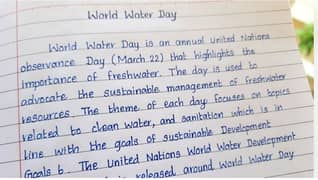 World Water Day
World Water Day is an annual United Nations
observance Day (March 22) that highlights the
importance of freshwater. The day is used to
advocate the sustainable management of freshwater
resources. The theme of each day focuses on topics
related to clean water, and sanitation which is in
line with the goals of sustainable Development
Goals 6. The United Nations World Water Development
released around World Water Day